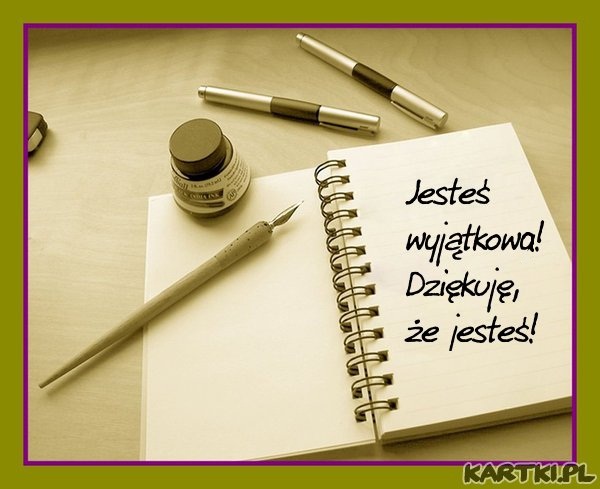 Jesteś
wyjątkowa!
Dziękuję,
że jesteś!
INDIA INK
KARTKI.PL